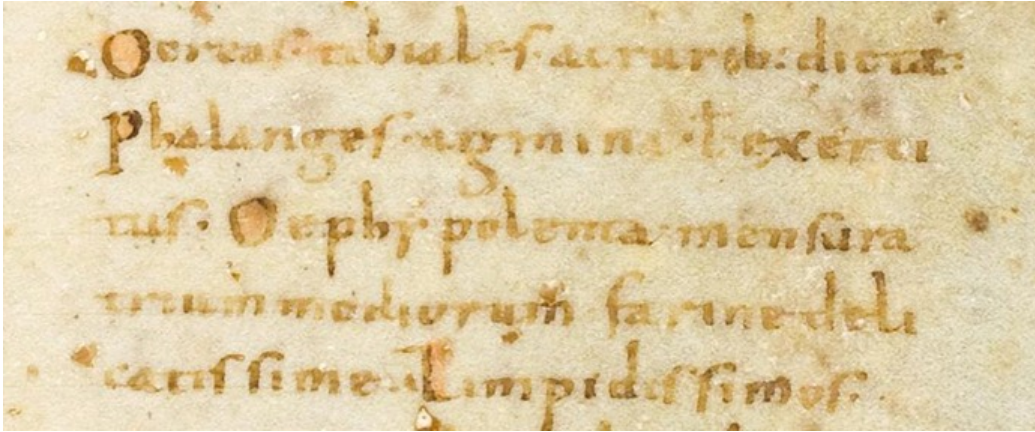 Ocreas tibiales. a cruribꝰ dictae:
Phalanges. agmina. ł exerci
tus. Oephy polenta mensura
trium modiorum farine deli
catissime. Limpidissimos.